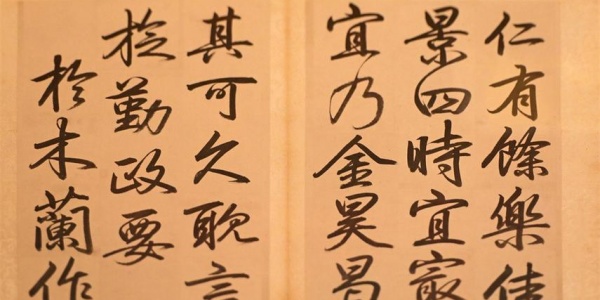 仁有餘樂佳
景四時宜㝡
宜乃金昊曷
其可久耽言
於勤政要
於木蘭作